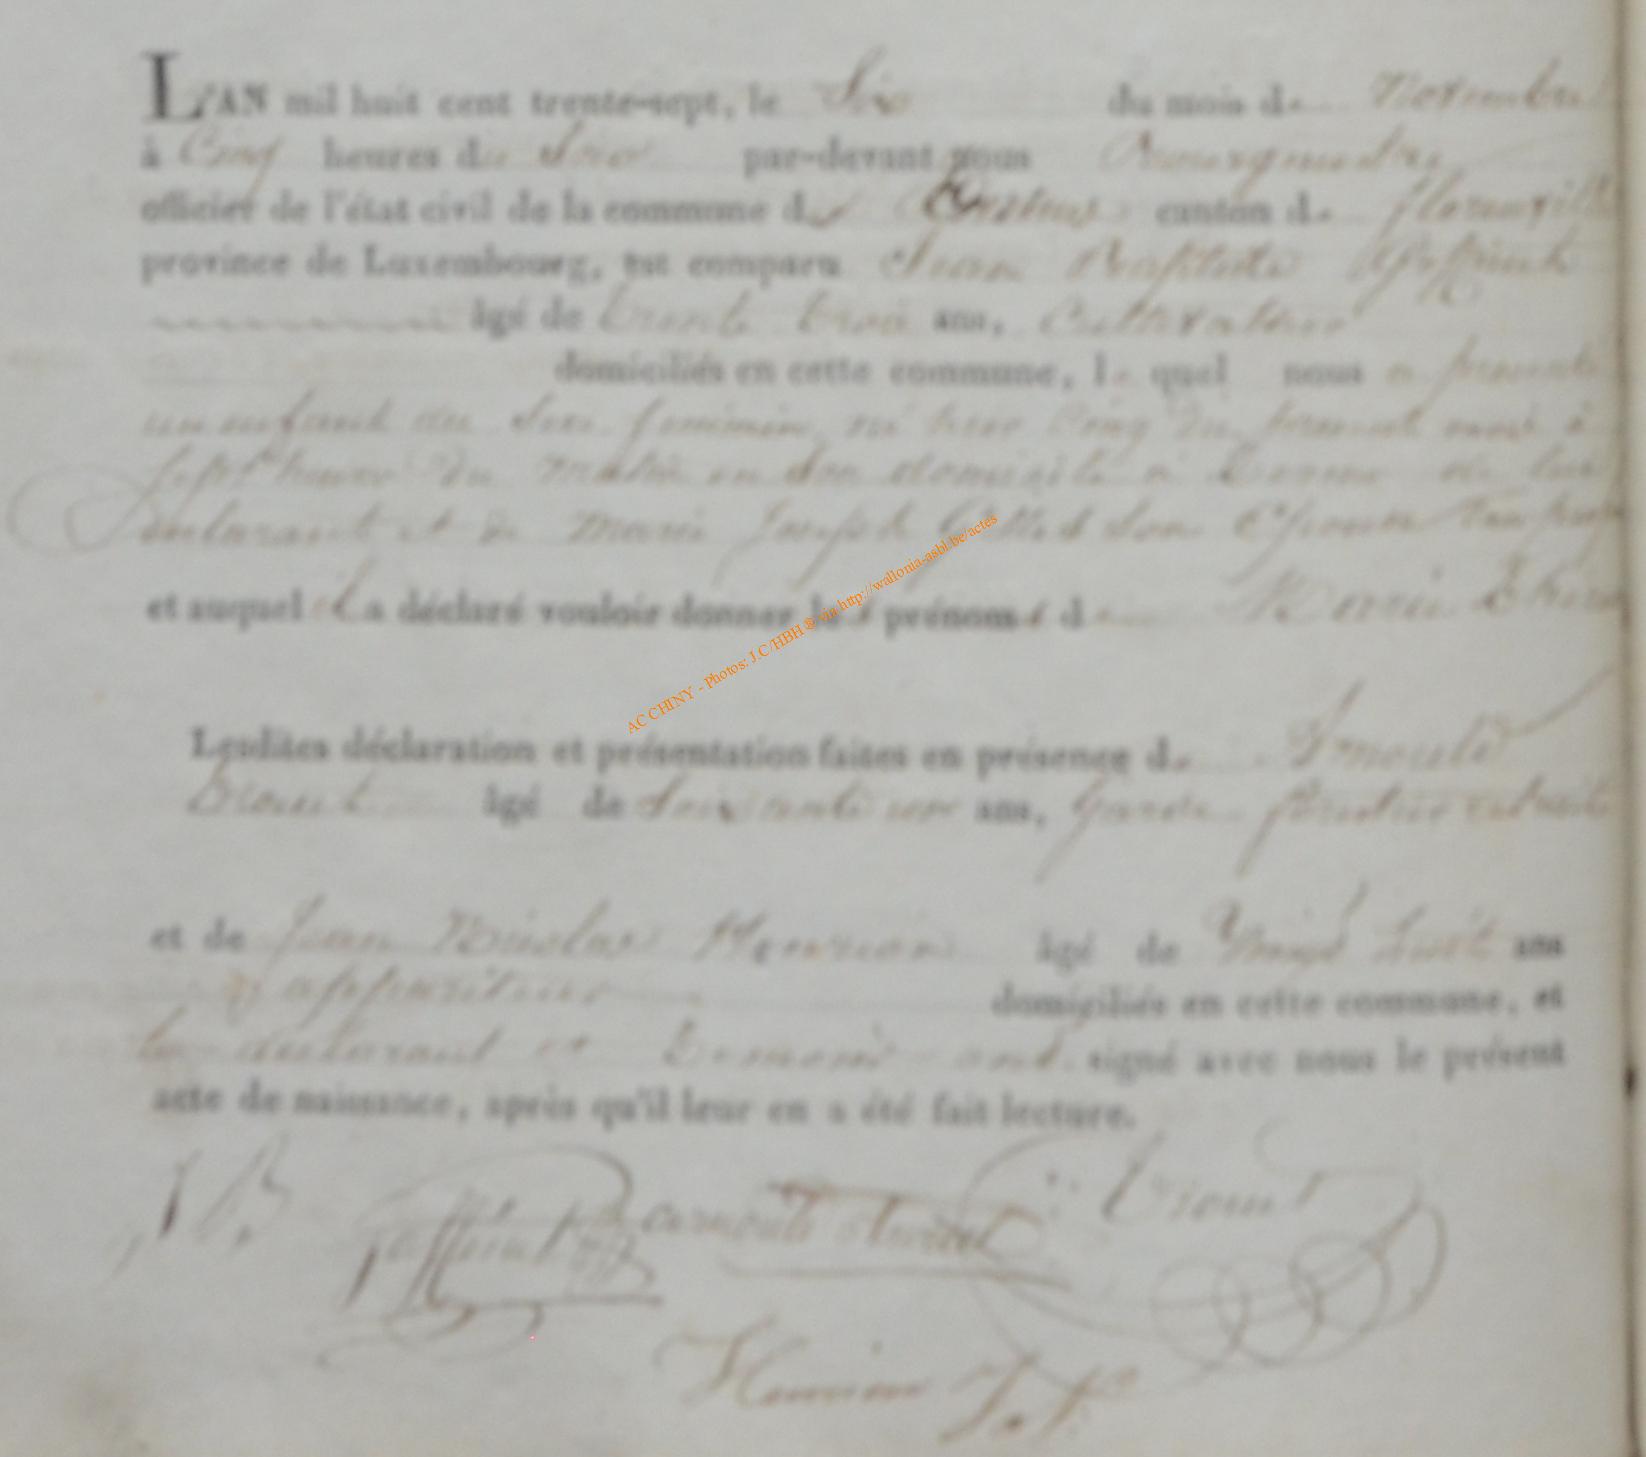 L'AN mil huit cent trente-sept, le Six du mois de Novembre
à Cinq heures du Soir par-devant nous Bourgmestre
officier de l'état civil de la commune d canton de florenville
province de Luxembourg, est comparu Jean Baptiste
âgé de trente trois ans, Cultivateur
domiciliés en cette commune, le quel nous a presenté
un enfant du Sexe feminin, né hier Cinq du present mois à
Sept heures du matin en Son domicile à de lui
declarant et de Marie Joseph Son Epouse
et auquel il a déclaré vouloir donner les prénoms de Marie
Lesdites déclaration et présentation faites en présence de
âgé de Soixante un ans, Garde forestier
et de Jean Nicolas Henrion âgé de Vingt huit ans
appariteur domiciliés en cette commune, et
le declarant et temoins ont signé avec nous le présent
acte de naissance, après qu'il leur en a été fait lecture.
Henrion J.N.
AC CHINY - Photos: J.C/HBH ® via http://wallonia-asbl.be/actes